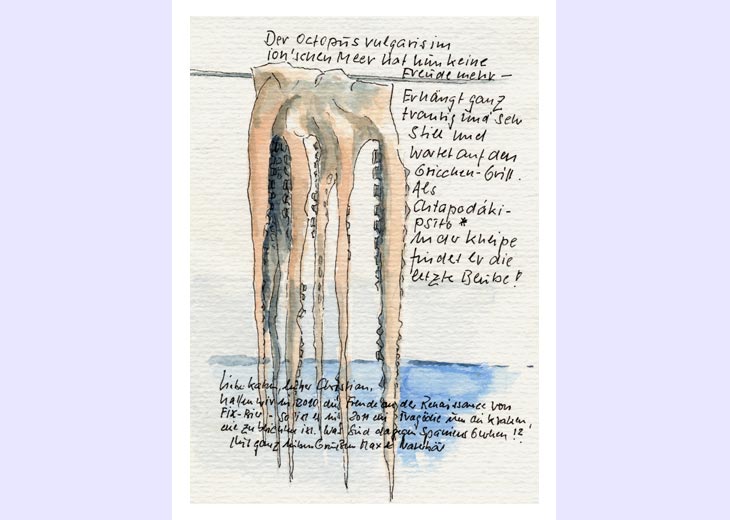 Der Octopus vulgaris im
ion'schen Meer hat nun keine
Freude mehr —
Er hängt ganz
traurig und sehr
still und
wartet auf den
Griechen-Grill.
Als
Chtapodáki-
psitó *
In der Kneipe
findet er die
letzte Bleibe!
Liebe lieber Christian,
hatten wir in 2010 die Freude an der Renaissance von
Fix-Bier - so ist es in 2011 eine Tragödie um die Kraken,
die zu ist. Was sind dagegen Spaniens Gurken!?
Mit ganz lieben Grüßen Max &